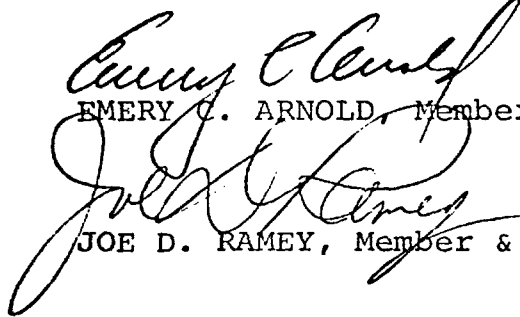 Emery C Arnold
EMERY C. ARNOLD, Member
Joe D. Ramey
JOE D. RAMEY, Member &